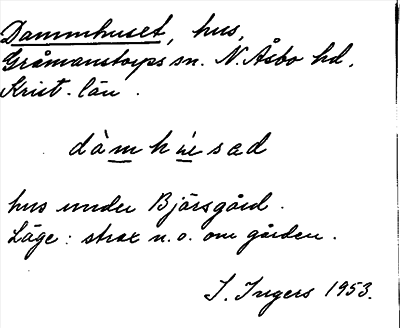 Dammhuset, hus,
Gråmanstorps sn. N. Åsbo hd.
Krist. län.
hus under Bjärsgård.
Läge: strax n. o. om gården.
I. Ingers 1953.